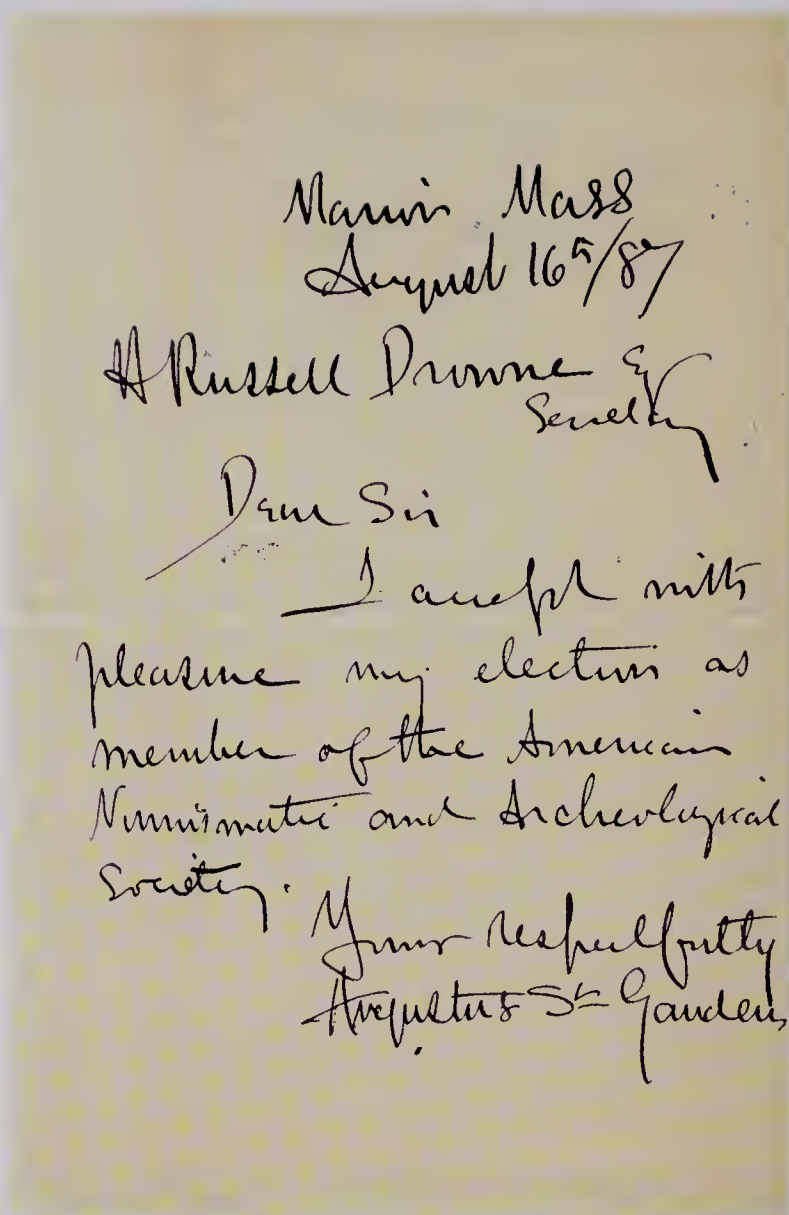 Marion Mass
August 16th/87
H Russell Drowne Esq
Secretary
Dear Sir
I accept with
pleasure my election as
member of the American
Numismatic and Archeological
Society.
Yours respectfully
Augustus St Gaudens